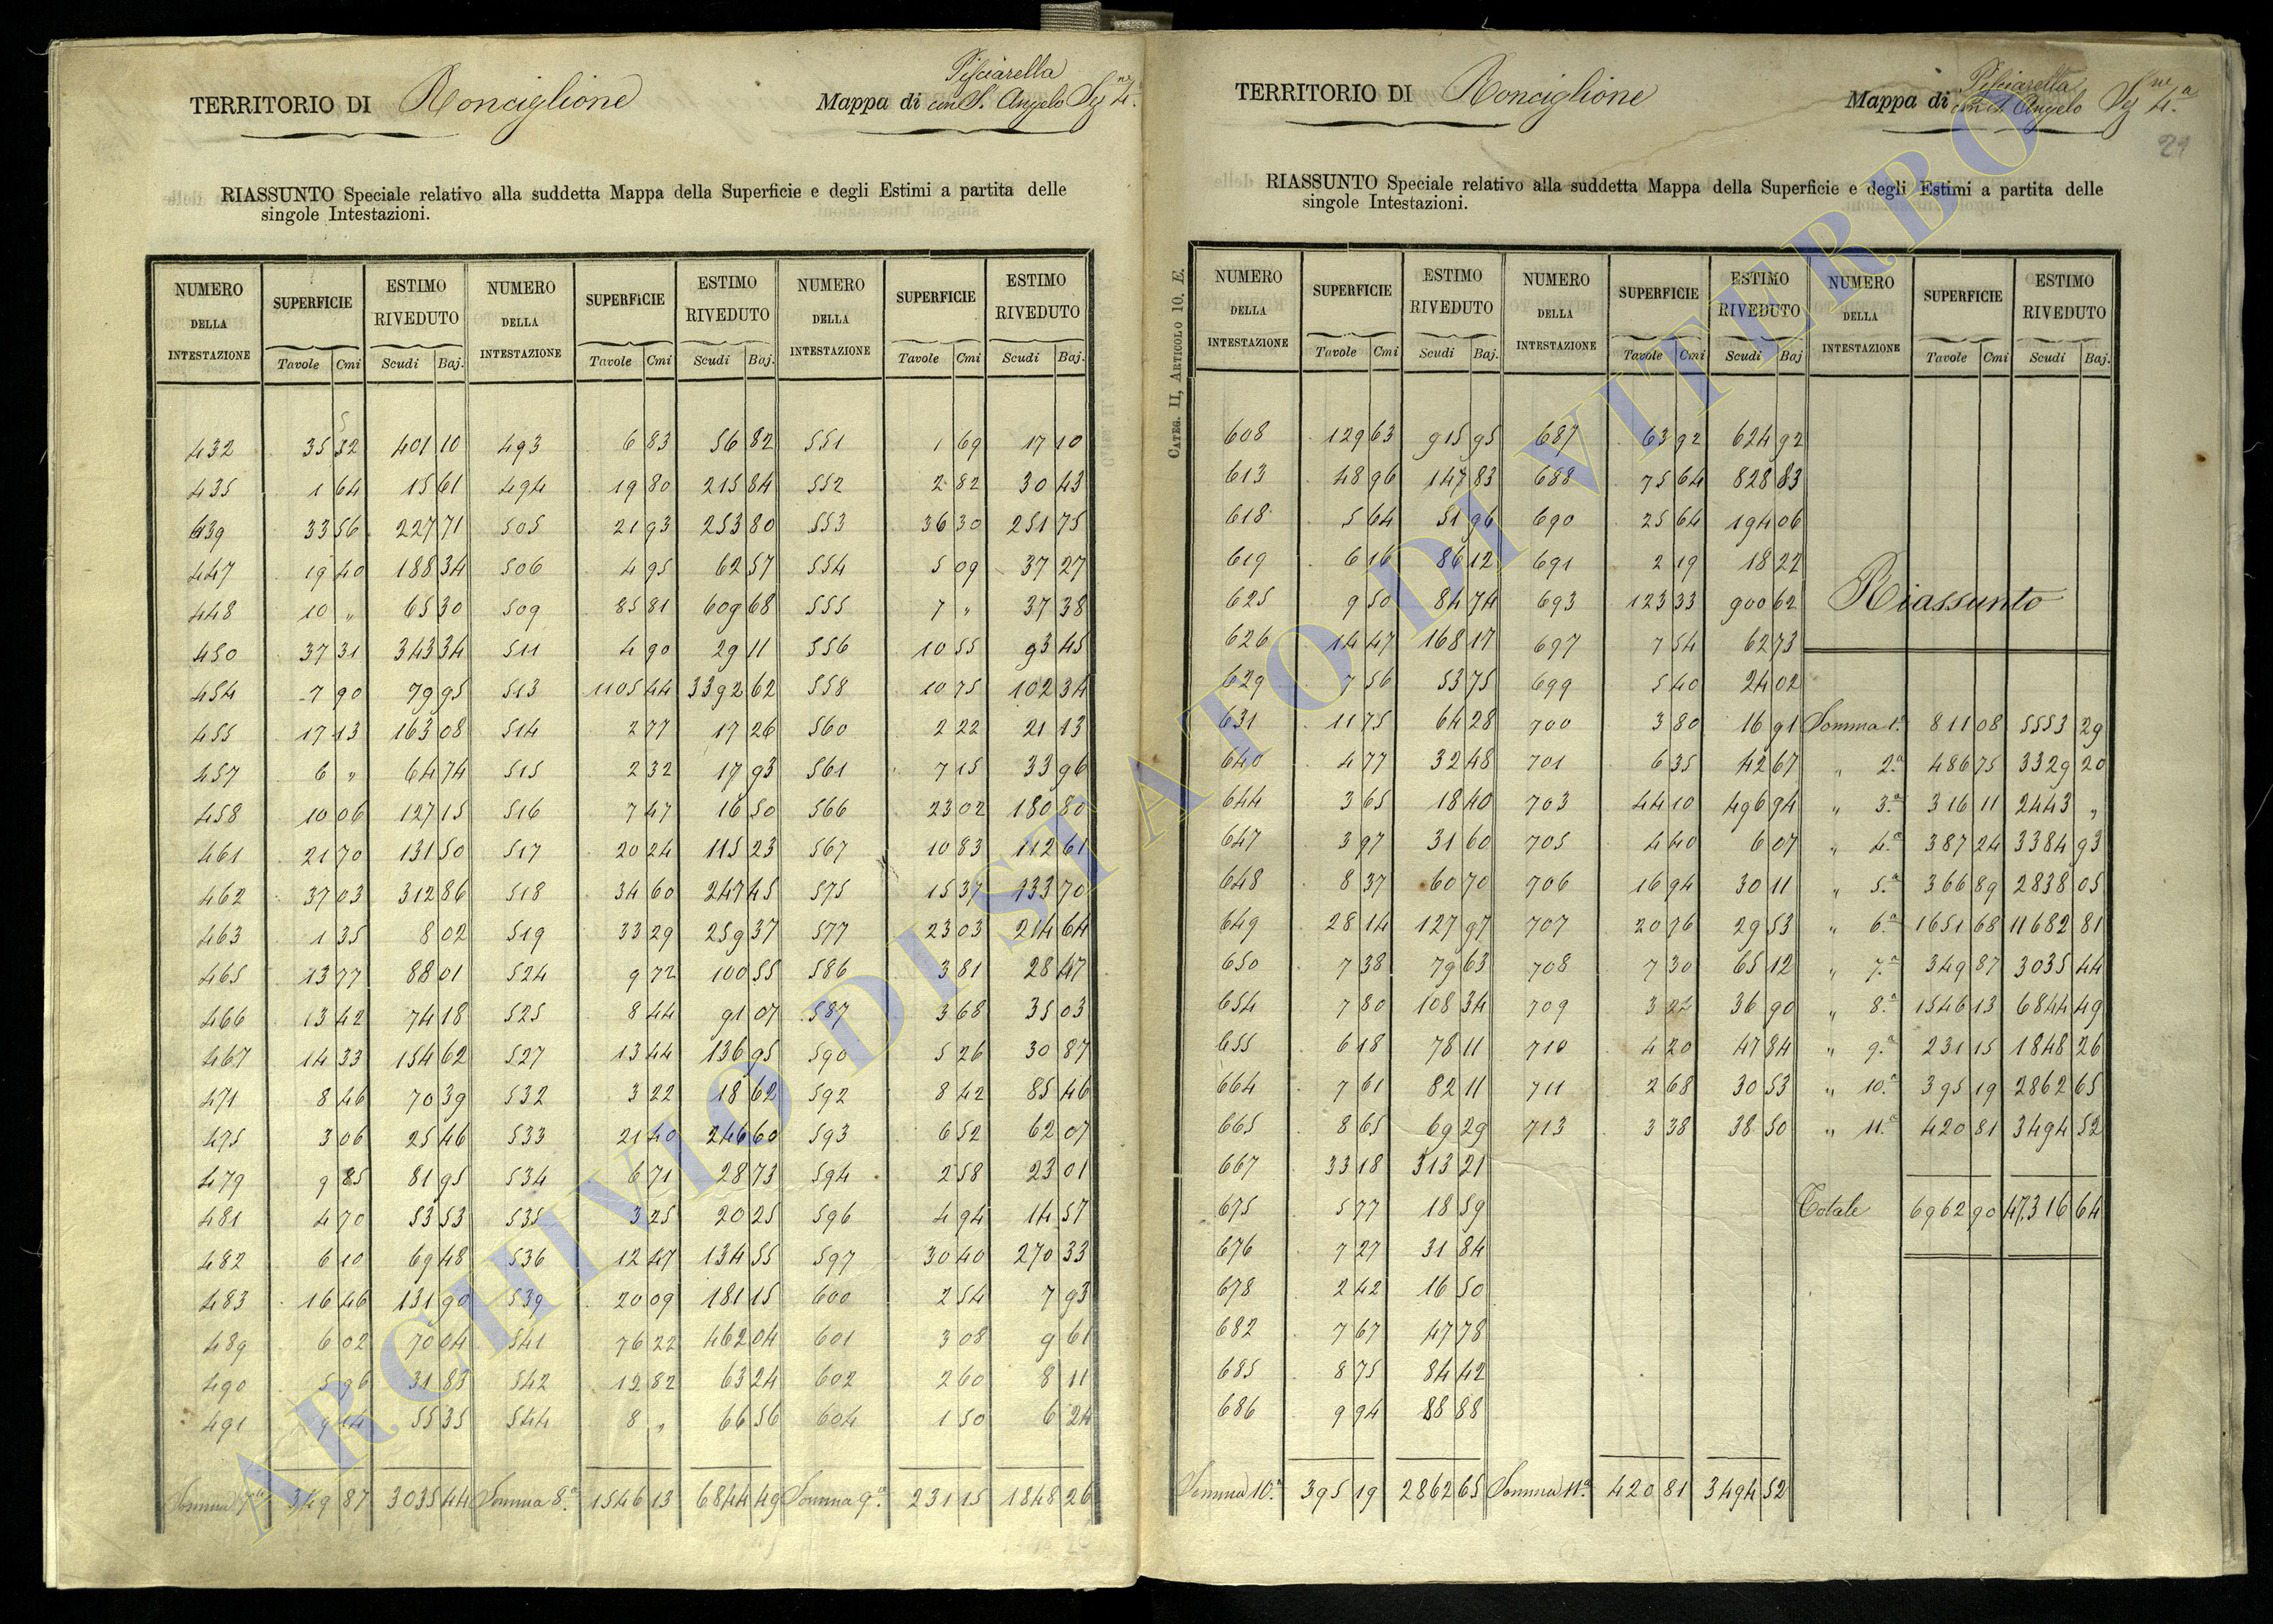 TERRITORIO DI Ronciglione
Mappa di Pisciarella con S. Angelo Sez.ne 4.a
RIASSUNTO Speciale relativo alla suddetta Mappa della Superficie e degli Estimi a partita delle
singole Intestazioni.
NUMERO DELLA INTESTAZIONE SUPERFICIE ESTIMO RIVEDUTO NUMERO DELLA INTESTAZIONE SUPERFICIE ESTIMO RIVEDUTO NUMERO DELLA INTESTAZIONE SUPERFICIE ESTIMO RIVEDUTO
Tavole Cmi Scudi Baj. Tavole Cmi Scudi Baj. Tavole Cmi Scudi Baj.
432 35 52 401 10 493 6 83 56 82 551 1 69 17 10
435 1 64 15 61 494 19 80 215 84 552 2 82 30 43
439 33 56 227 71 505 21 93 253 80 553 36 30 251 75
447 19 40 188 34 506 4 95 62 57 554 5 09 37 27
448 10 " 65 30 509 85 81 609 68 555 7 " 37 38
450 37 31 343 34 511 4 90 29 11 556 10 55 93 45
454 7 90 79 95 513 1105 44 3392 62 558 10 75 102 34
455 17 13 163 08 514 2 77 17 26 560 2 22 21 13
457 6 " 64 74 515 2 32 17 93 561 7 15 33 96
458 10 06 127 15 516 7 47 16 50 566 23 02 180 80
461 21 70 131 50 517 20 24 115 23 567 10 83 112 61
462 37 03 312 86 518 34 60 247 45 575 15 37 133 70
463 1 35 8 02 519 33 29 259 37 577 23 03 214 64
465 13 77 88 01 524 9 72 100 55 586 3 81 28 47
466 13 42 74 18 525 8 44 91 07 587 3 68 35 03
467 14 33 154 62 527 13 44 136 95 590 5 26 30 87
471 8 46 70 39 532 3 22 18 62 592 8 42 85 46
475 3 06 25 46 533 21 40 246 60 593 6 52 62 07
479 9 85 81 95 534 6 71 28 73 594 2 58 23 01
481 4 70 53 53 535 3 25 20 25 596 4 94 14 57
482 6 10 69 48 536 12 47 134 55 597 30 40 270 33
483 16 46 131 90 539 20 09 181 15 600 2 54 7 93
489 6 02 70 04 541 76 22 462 04 601 3 08 9 61
490 5 96 31 83 542 12 82 63 24 602 2 60 8 11
491 9 14 55 35 544 8 " 66 56 604 1 50 6 24
Somma 7.a 349 87 3035 44 Somma 8.a 1546 13 6844 49 Somma 9.a 231 15 1848 26
TERRITORIO DI Ronciglione
Mappa di Pisciarella con S. Angelo Sez.ne 4.a
21
RIASSUNTO Speciale relativo alla suddetta Mappa della Superficie e degli Estimi a partita delle
singole Intestazioni.
CATEG. II, ARTICOLO 10. E.
NUMERO DELLA INTESTAZIONE SUPERFICIE ESTIMO RIVEDUTO NUMERO DELLA INTESTAZIONE SUPERFICIE ESTIMO RIVEDUTO NUMERO DELLA INTESTAZIONE SUPERFICIE ESTIMO RIVEDUTO
Tavole Cmi Scudi Baj. Tavole Cmi Scudi Baj Tavole Cmi Scudi Baj.
608 129 63 915 95 687 63 92 624 92
613 48 96 147 83 688 75 64 828 83
618 5 64 51 96 690 25 64 194 06
619 6 16 86 12 691 2 19 18 22
625 9 50 84 74 693 123 33 900 62 Riassunto
626 14 47 168 17 697 7 54 62 73
629 7 56 53 75 699 5 40 24 02
631 11 75 64 28 700 3 80 16 91 Somma 1.a 811 08 5553 29
640 4 77 32 48 701 6 35 42 67 " 2.a 486 75 3329 20
644 3 65 18 40 703 44 10 496 94 " 3.a 316 11 2443 "
647 3 97 31 60 705 4 40 6 07 " 4.a 387 24 3384 93
648 8 37 60 70 706 16 94 30 11 " 5.a 366 89 2838 05
649 28 14 127 97 707 20 76 29 53 " 6.a 1651 68 11682 81
650 7 38 79 63 708 7 30 65 12 " 7.a 349 87 3035 44
654 7 80 108 34 709 3 22 36 90 " 8.a 1546 13 6844 49
655 6 18 78 11 710 4 20 47 84 " 9.a 231 15 1848 26
664 7 61 82 11 711 2 68 30 53 " 10.a 395 19 2862 65
665 8 65 69 29 713 3 38 38 50 " 11.a 420 81 3494 52
667 33 18 313 21
675 5 77 18 59 Totale 6962 90 47,316 64
676 7 27 31 84
678 2 42 16 50
682 7 67 47 78
685 8 75 84 42
686 9 94 88 88
Somma 10.a 395 19 2862 65 Somma 11.a 420 81 3494 52
ARCHIVIO DI STATO DI VITERBO